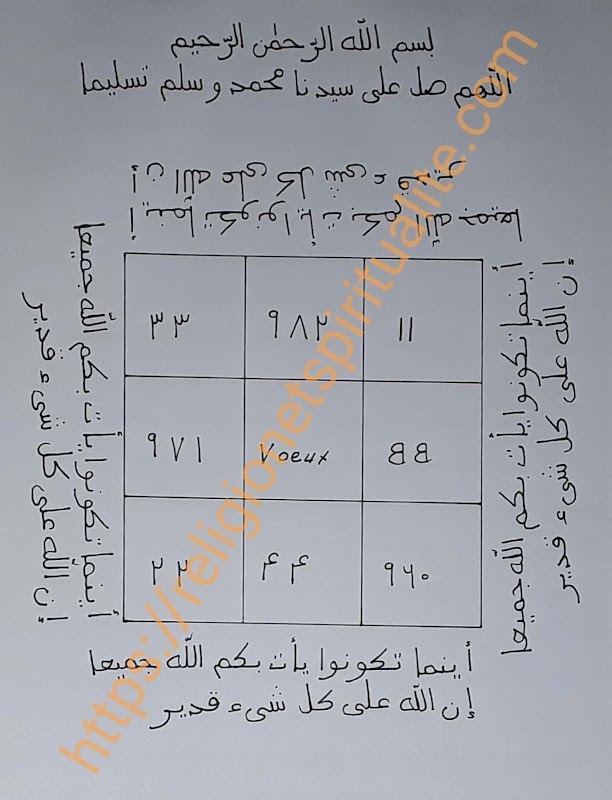 بسم الله الرّحمٰن الرّحيم
اللّهم صل على سيدنا محمد وسلم تسليما
إن الله على كل شىء قدير
أينما تكونوا يأت بكم الله جميعا
أينما تكونوا يأت بكم الله جميعا
إن الله على كل شىء قدير
أينما تكونوا يأت بكم الله جميعا
إن الله على كل شىء قدير
٣٣ ٩٨٢ ١١
٩٧١ Voeux ٥٥
٢٢ ۴۴ ٩٦٠
أينما تكونوا يأت بكم الله جميعا
إن الله على كل شىء قدير
https://religionetspiritualite.com